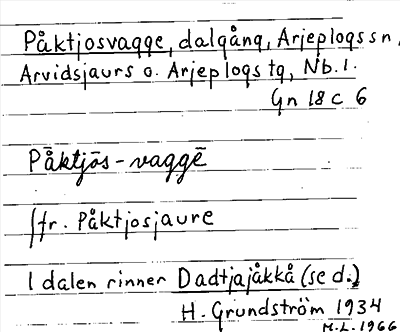 Påktjosvagge, dalgång, Arjeplogs sn,
Arvidsjaurs o. Arjeplogs tg, Nb. l.
Gn 18 C 6
Påktjŏs-vaggē
Jfr. Påktjosjaure
I dalen rinner Dadtjajåkkå (se d.)
H. Grundström 1934
M.L. 1966